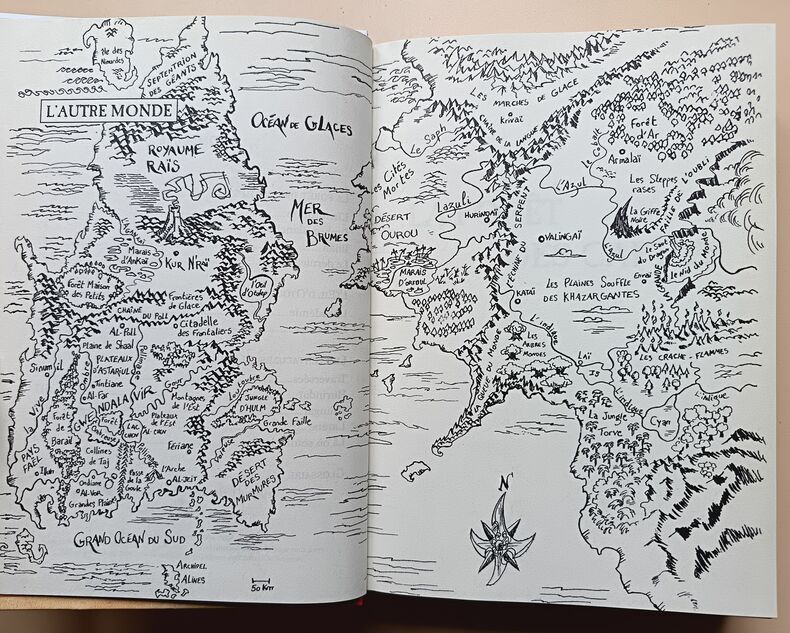 Île des
Nimurdes
SEPTENTRION
DES GÉANTS
L'AUTRE MONDE
ROYAUME
RAÏS
OCÉAN DE GLACES
MER
DES
BRUMES
Marais
d'Ankaï
KUR N'RAÏ
Forêt Maison
des Petits
Œil
d'Otolep
Frontières
de Glace
CHAÎNE
DU POLL
AL-POLL
Citadelle
des Frontaliers
Plaine de Shaal
PLATEAUX
D'ASTARIUL
Tintiane
AL-FAR
GWENDALAVIR
Montagnes
de l'Est
Plateaux
de l'Est
JUNGLE
D'HULM
Grande Faille
La Vive
PAYS
FAËL
Illuin
Forêt
de
Baraïl
Collines
de Taj
LAC
CHEN
AL-CHEN
Ondiane
AL-VOR
Grandes Plaines
Passe
de la
Goule
Fériane
L'Arche
AL-JEIT
DÉSERT
DES
MURMURES
GRAND OCÉAN DU SUD
ARCHIPEL
ALINES
50 Km
LES MARCHES DE GLACE
Krivaï
CHAÎNE DE LA LANGUE
Le Sagh
Les Cités
Mortes
Lazuli
HURINDAÏ
DÉSERT
OUROU
L'ÉCHINE DU SERPENT
Forêt
d'Ar
Armalaï
L'Azul
Les Steppes
rases
La Griffe
Noire
FAILLE DE L'OURLI
L'Azul
Le Saut
du Dragon
Le Nid du Monde
Ennaï
VALINGAÏ
KATAÏ
LES PLAINES SOUFFLE
DES KHAZARGANTES
LES
ARBRES
MONDES
LA QUEUE DU MONDE
LAÏ
LES CRACHE-FLAMMES
L'indigue
Cyan
La Jungle
Torve
N